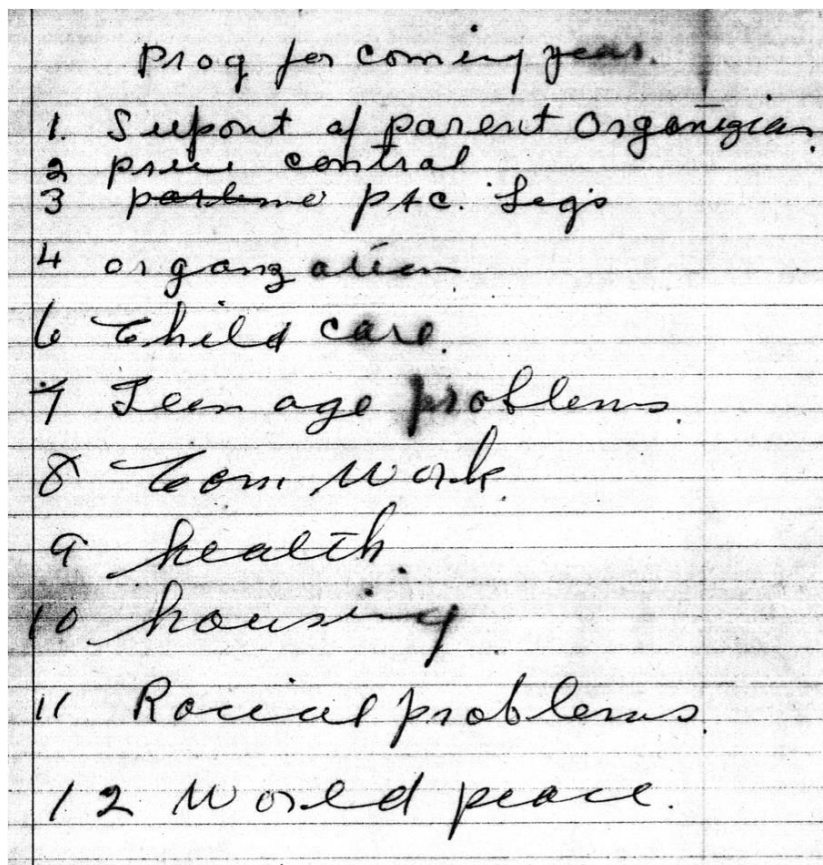 Prog for coming year.
1. Supont of parent Organizian.
2 price control
3 PAC. Legs
4 organzation
6 Child care.
7 Teen age problems.
8 Com Work.
9 health.
10 housing.
11 Racial problems.
12 World peace.